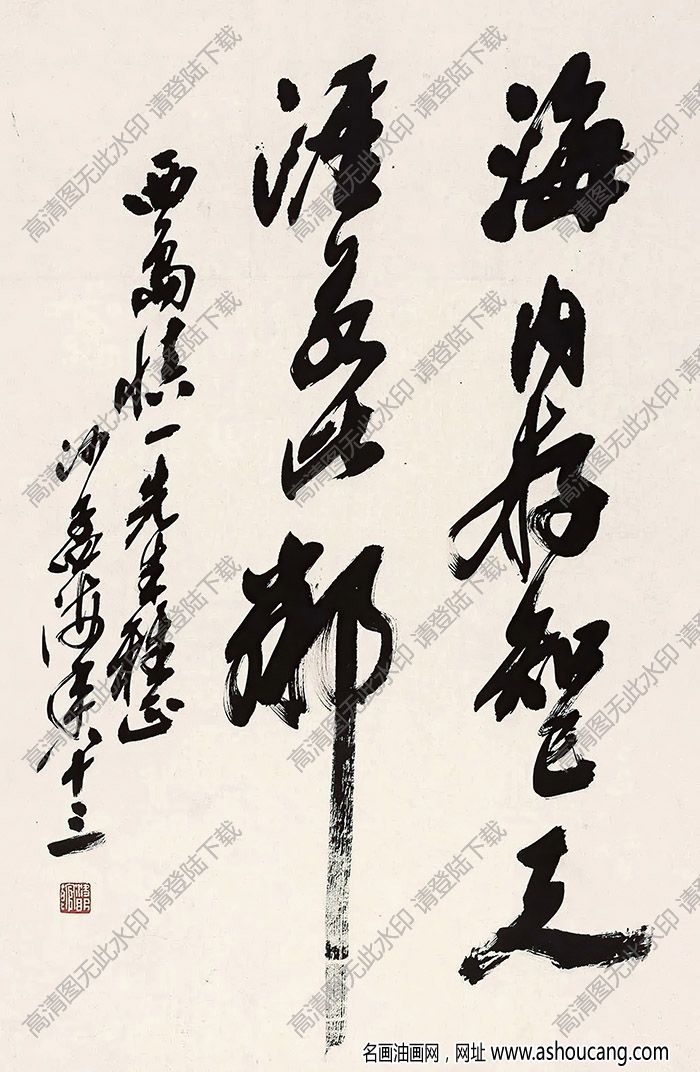 海内存知己天
涯若比鄰
西島慎一先生雅正
沙孟海年八十三
高清图无此水印 请登陆下载
高清图无此水印 请登陆下载
高清图无此水印
高清图无此水印 请登陆下载
高清图无此水印 请登陆下载
高清图无此水印
高清图无此水印 请登陆下载
高清图无此水印 请登陆下载
高清图无此水印
高清图无此水印 请登陆下载
高清图无此水印 请登陆下载
高清图无此水印
名画油画网，网址 www.ashoucang.com